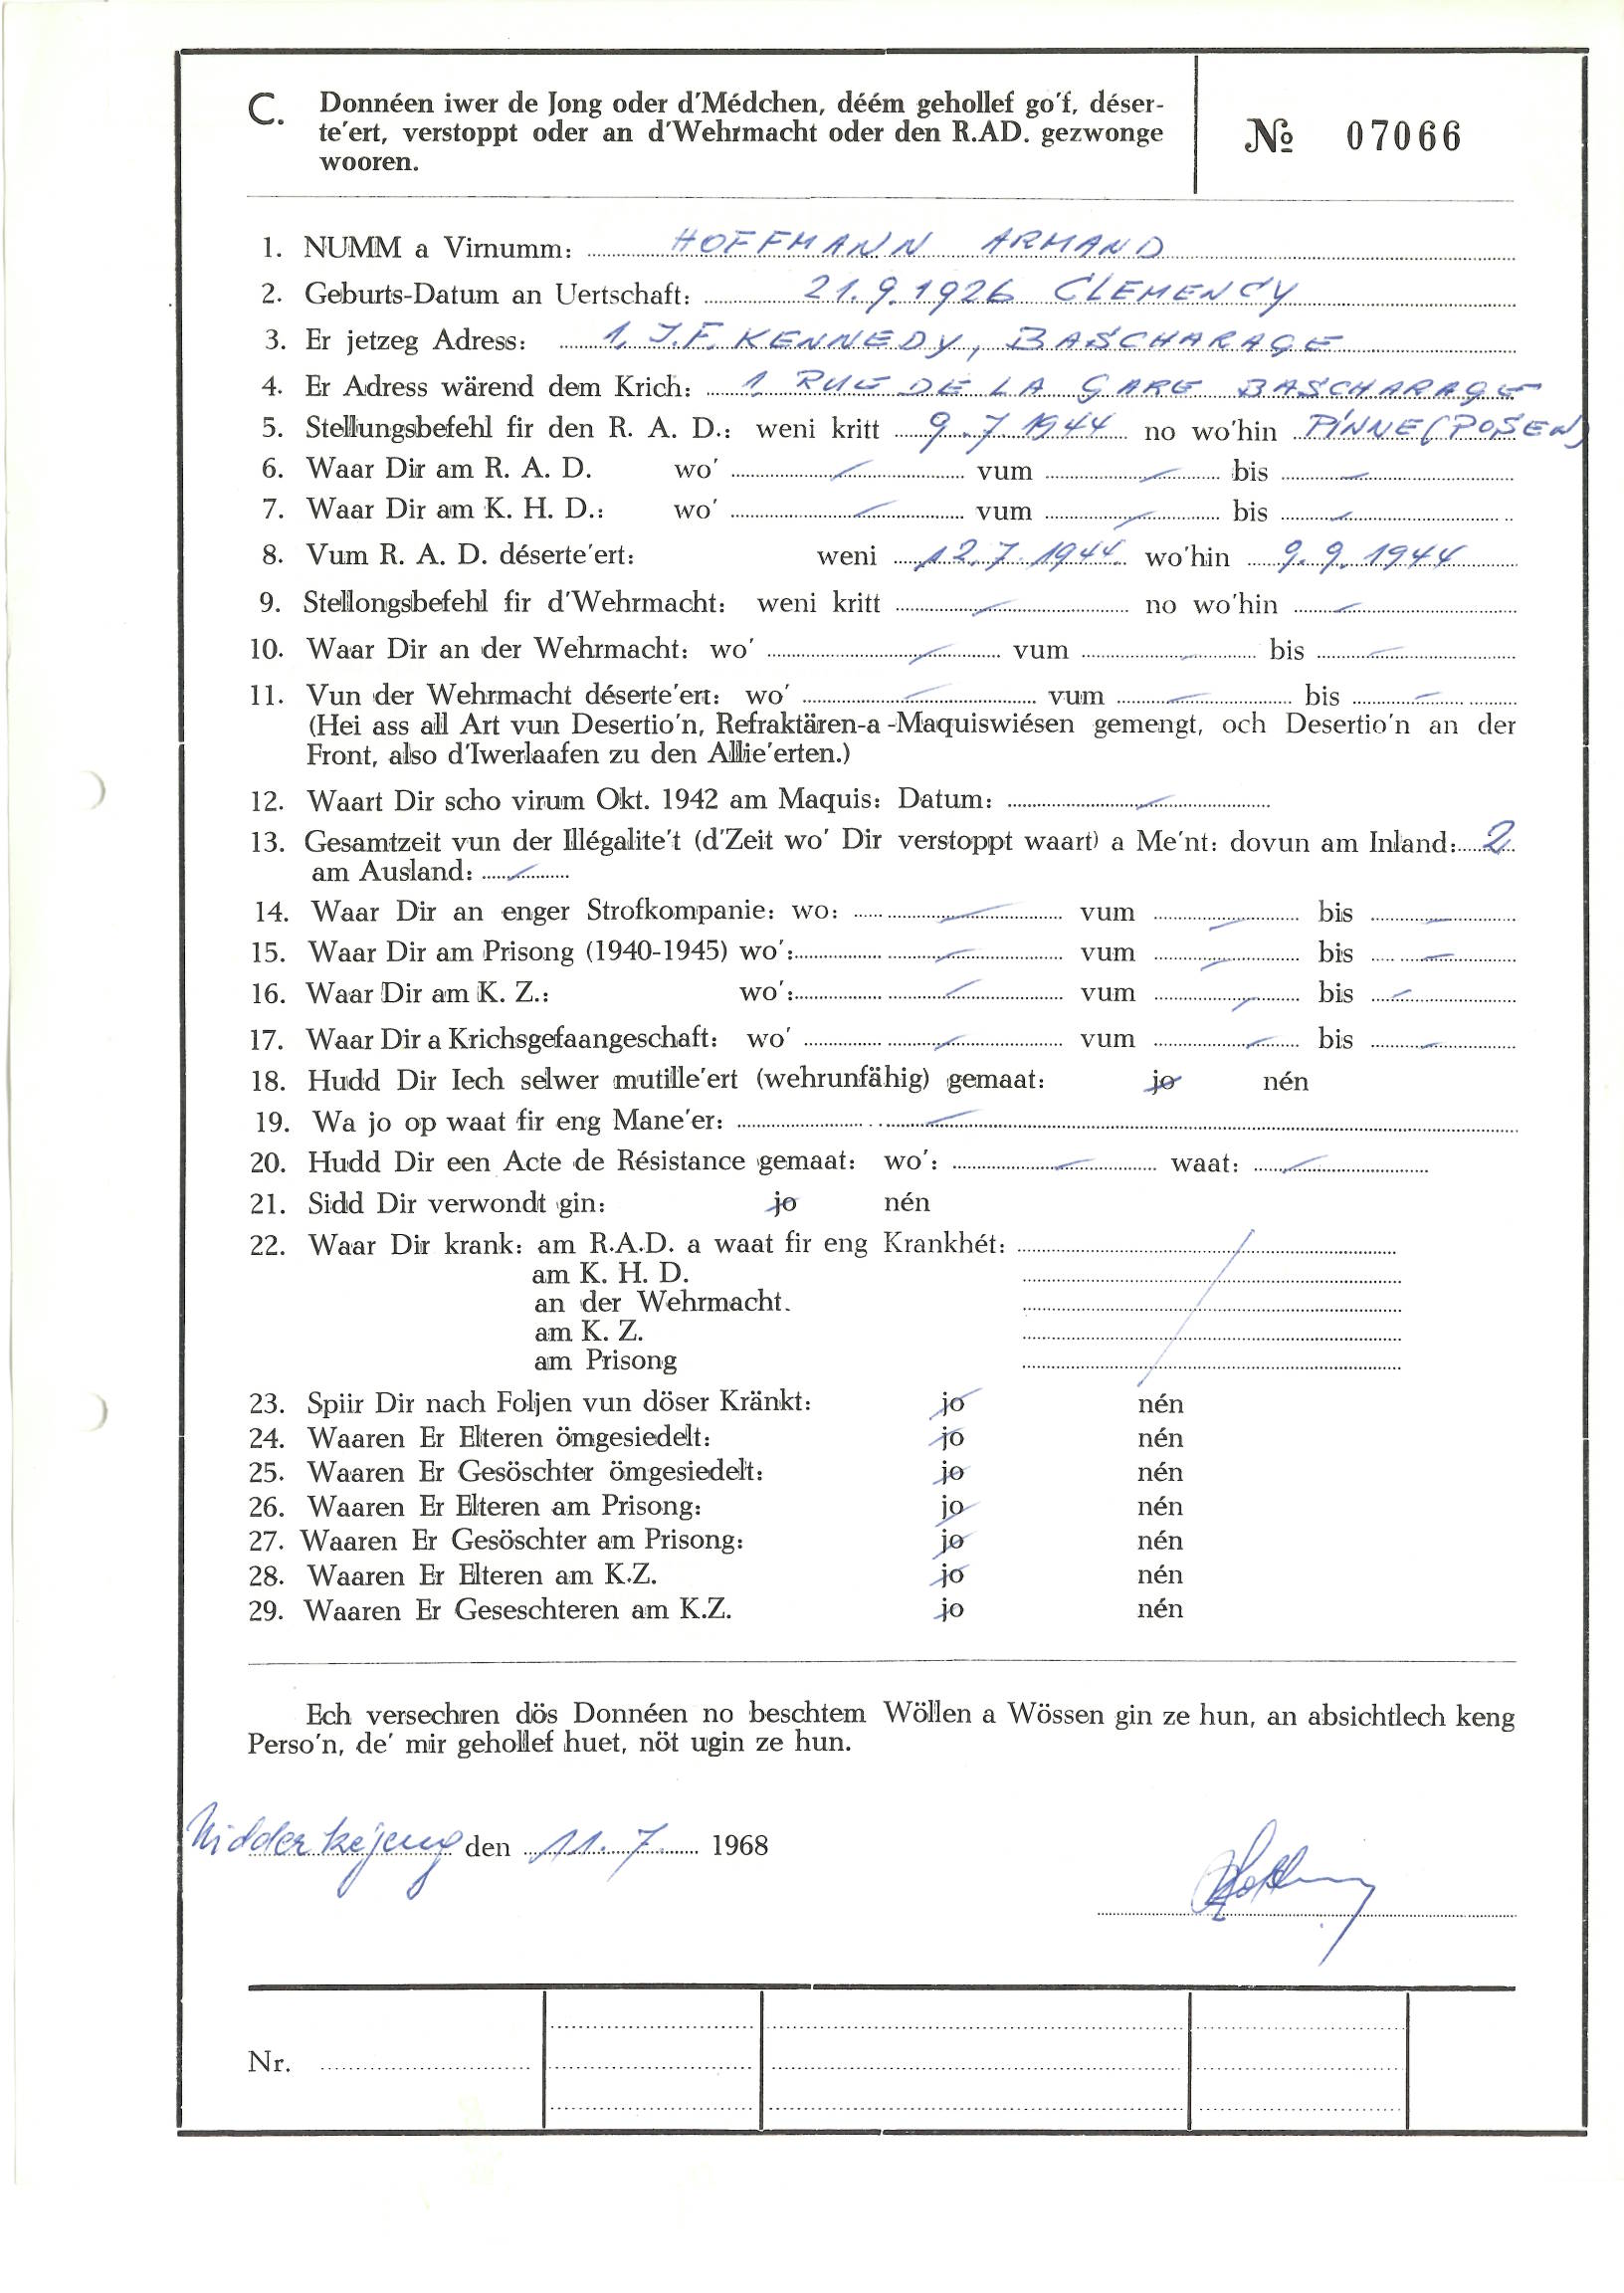 C. Donnéen iwer de Jong oder d'Médchen, déém gehollef go'f, déser-
te'ert, verstoppt oder an d'Wehrmacht oder den R.AD. gezwonge
wooren.
№ 07066
1. NUMM a Virnumm: HOFFMANN ARMAND
2. Geburts-Datum an Uertschaft: 21.9.1926 CLEMENCY
3. Er jetzeg Adress: 1, J.F. KENNEDY, BASCHARAGE
4. Er Adress wärend dem Krich: 1 RUE DE LA GARE BASCHARAGE
5. Stellungsbefehl fir den R. A. D.: weni kritt 9.7.1944 no wo'hin PINNE (POSEN)
6. Waar Dir am R. A. D. wo' — vum — bis —
7. Waar Dir am K. H. D.: wo' — vum — bis —
8. Vum R. A. D. déserte'ert: weni 12.7.1944 wo'hin 9.9.1944
9. Stellongsbefehl fir d'Wehrmacht: weni kritt — no wo'hin —
10. Waar Dir an der Wehrmacht: wo' — vum — bis —
11. Vun der Wehrmacht déserte'ert: wo' — vum — bis —
(Hei ass all Art vun Desertio'n, Refraktären-a-Maquiswiésen gemengt, och Desertio'n an der
Front, also d'Iwerlaafen zu den Allie'erten.)
12. Waart Dir scho virum Okt. 1942 am Maquis: Datum: —
13. Gesamtzeit vun der Illégalite't (d'Zeit wo' Dir verstoppt waart) a Me'nt: dovun am Inland: 2
am Ausland: —
14. Waar Dir an enger Strofkompanie: wo: — vum — bis —
15. Waar Dir am Prisong (1940-1945) wo': — vum — bis —
16. Waar Dir am K. Z.: wo': — vum — bis —
17. Waar Dir a Krichsgefaangeschaft: wo' — vum — bis —
18. Hudd Dir Iech selwer mutille'ert (wehrunfähig) gemaat: jo nén
19. Wa jo op waat fir eng Mane'er: —
20. Hudd Dir een Acte de Résistance gemaat: wo': — waat: —
21. Sidd Dir verwondt gin: jo nén
22. Waar Dir krank: am R.A.D. a waat fir eng Krankhét:
am K. H. D.
an der Wehrmacht.
am K. Z.
am Prisong
23. Spiir Dir nach Foljen vun döser Kränkt: jo nén
24. Waaren Er Elteren ömgesiedelt: jo nén
25. Waaren Er Gesöschter ömgesiedelt: jo nén
26. Waaren Er Elteren am Prisong: jo nén
27. Waaren Er Gesöschter am Prisong: jo nén
28. Waaren Er Elteren am K.Z. jo nén
29. Waaren Er Geseschteren am K.Z. jo nén
Ech versechren dös Donnéen no beschtem Wöllen a Wössen gin ze hun, an absichtlech keng
Perso'n, de' mir gehollef huet, nöt ugin ze hun.
Nidderkejeng den 11.7. 1968
Nr.